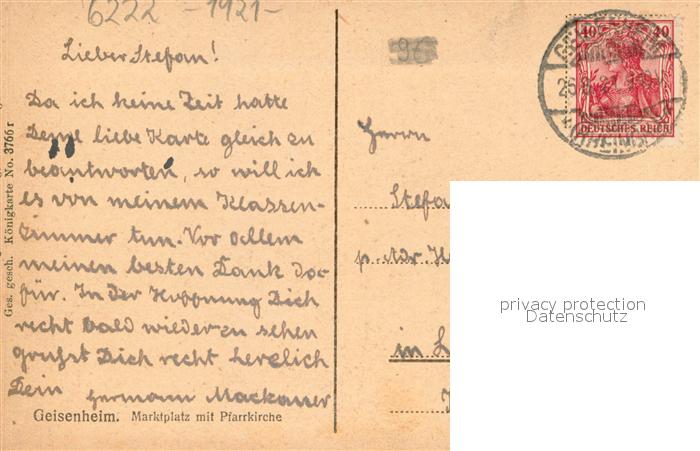 6222 - 1921 -
96
Lieber Stefan!
Da ich keine Zeit hatte
Deine liebe Karte gleich zu
beantworten, so will ich
es von meinem Klassen-
zimmer tun. Vor allem
meinen besten Dank da-
für. In der Hoffnung Dich
recht bald wieder zu sehen
grüßt Dich recht herzlich
Dein Hermann Mackauer
Geisenheim. Marktplatz mit Pfarrkirche
Ges. gesch. Königkarte No. 3766 r
40 40
DEUTSCHES REICH
Herrn
Stefa
p. Adr. H
in
privacy protection
Datenschutz